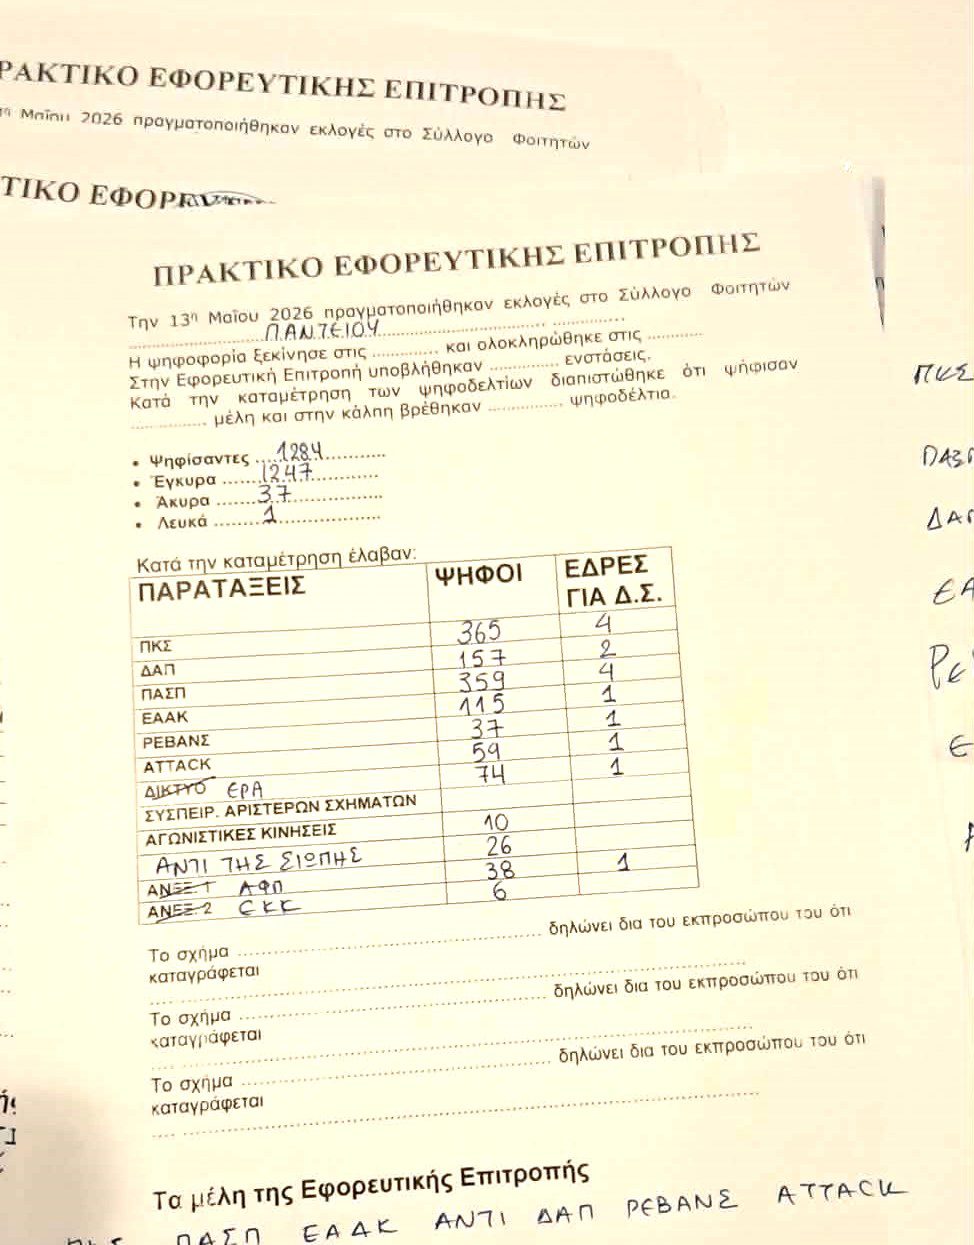 ΡΑΚΤΙΚΟ ΕΦΟΡΕΥΤΙΚΗΣ ΕΠΙΤΡΟΠΗΣ
η Μαΐου 2026 πραγματοποιήθηκαν εκλογές στο Σύλλογο Φοιτητών
ΤΙΚΟ ΕΦΟΡΕΥ
ΠΡΑΚΤΙΚΟ ΕΦΟΡΕΥΤΙΚΗΣ ΕΠΙΤΡΟΠΗΣ
Την 13η Μαΐου 2026 πραγματοποιήθηκαν εκλογές στο Σύλλογο Φοιτητών
ΠΑΝΤΕΙΟΥ
Η ψηφοφορία ξεκίνησε στις .............. και ολοκληρώθηκε στις ............
Στην Εφορευτική Επιτροπή υποβλήθηκαν .............. ενστάσεις.
Κατά την καταμέτρηση των ψηφοδελτίων διαπιστώθηκε ότι ψήφισαν
............... μέλη και στην κάλπη βρέθηκαν ............... ψηφοδέλτια.
• Ψηφίσαντες ....1284............
• Έγκυρα ........1247.............
• Άκυρα ........37..................
• Λευκά .........1....................
Κατά την καταμέτρηση έλαβαν:
ΠΑΡΑΤΑΞΕΙΣ ΨΗΦΟΙ ΕΔΡΕΣ
ΓΙΑ Δ.Σ.
ΠΚΣ 365 4
ΔΑΠ 157 2
ΠΑΣΠ 359 4
ΕΑΑΚ 115 1
ΡΕΒΑΝΣ 37 1
ATTACK 59 1
ΔΙΚΤΥΟ ΕΡΑ 74 1
ΣΥΣΠΕΙΡ. ΑΡΙΣΤΕΡΩΝ ΣΧΗΜΑΤΩΝ
ΑΓΩΝΙΣΤΙΚΕΣ ΚΙΝΗΣΕΙΣ 10
ΑΝΤΙ ΤΗΣ ΣΙΩΠΗΣ 26
ΑΝΕΞ. 1 ΑΦΠ 38 1
ΑΝΕΞ. 2 ΕΚΚ 6
Το σχήμα .................................................. δηλώνει δια του εκπροσώπου του ότι
καταγράφεται
Το σχήμα .................................................. δηλώνει δια του εκπροσώπου του ότι
καταγράφεται
Το σχήμα .................................................. δηλώνει δια του εκπροσώπου του ότι
καταγράφεται
Τα μέλη της Εφορευτικής Επιτροπής
ΠΚΣ ΠΑΣΠ ΕΑΑΚ ΑΝΤΙ ΔΑΠ ΡΕΒΑΝΣ ATTACK
ΠΚΣ